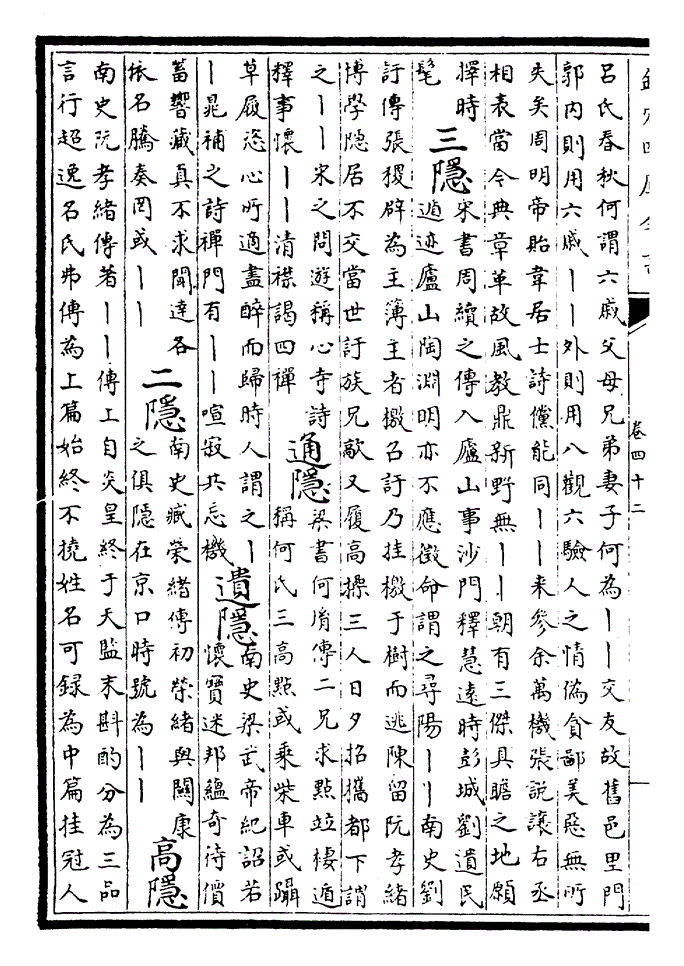 卷四十二
呂氏春秋何謂六戚父母兄弟妻子何為丨丨交友故舊邑里門
郭内則用六戚丨丨外則用八觀六驗人之情偽貪鄙美惡無所
失矣周明帝貽韋居士詩儻能同丨丨来參余萬機張說讓右丞
相表當今典章革故風教鼎新野無丨丨朝有三傑具瞻之地願
擇時
髦
三隱
宋書周續之傳入廬山事沙門釋慧遠時彭城劉遺民
遁迹廬山陶淵明亦不應徵命謂之尋陽丨丨南史劉
訏傳張稷辟為主簿主者檄召訏乃挂檄于樹而逃陳留阮孝緒
博學隐居不交當世訏族兄歊又履高操三人日夕招攜都下謂
之丨丨宋之問遊稱心寺詩
釋事懷丨丨清襟謁四禪
通隱
梁書何胤傳二兄求點竝棲遁
稱何氏三高點或乘柴車或躡
草屩恣心所適盡醉而歸時人謂之丨
丨晁補之詩禪門有丨丨喧寂共忘機
遺隱
南史梁武帝紀詔若
懷寶迷邦蘊奇待價
蓄響藏真不求聞達各
依名騰奏罔或丨丨
二隱
南史臧榮緒傳初榮緒與關康
之俱隱在京口時號為丨丨
高隱
南史阮孝緒傳著丨丨傳上自炎皇終于天監末斟酌分為三品
言行超逸名氏弗傳為上篇始終不撓姓名可録為中篇挂冠人